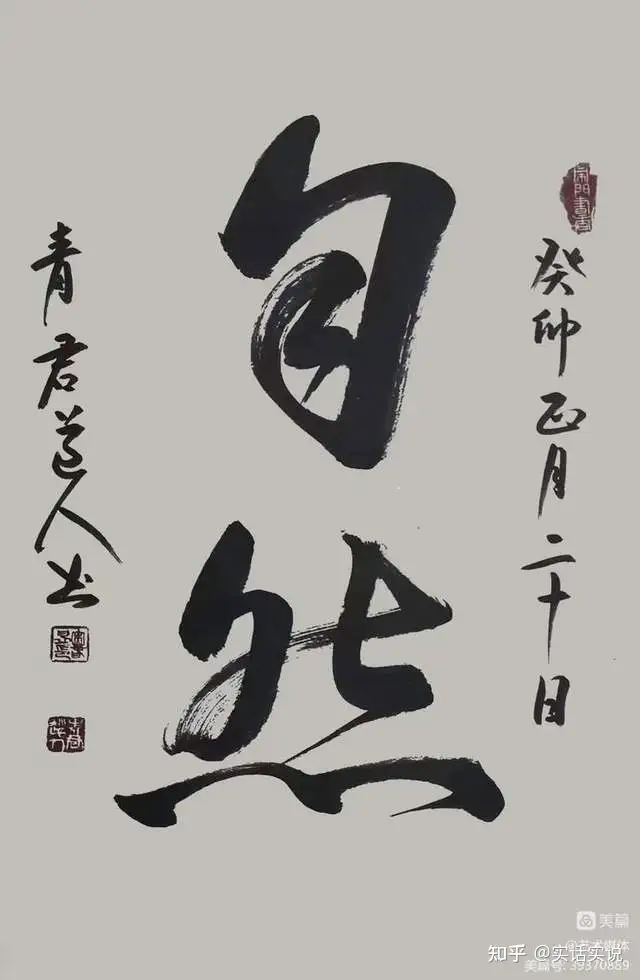 癸卯正月二十日
自然
青君道人书
美篇
知乎 @实话实说
美篇号:39370889